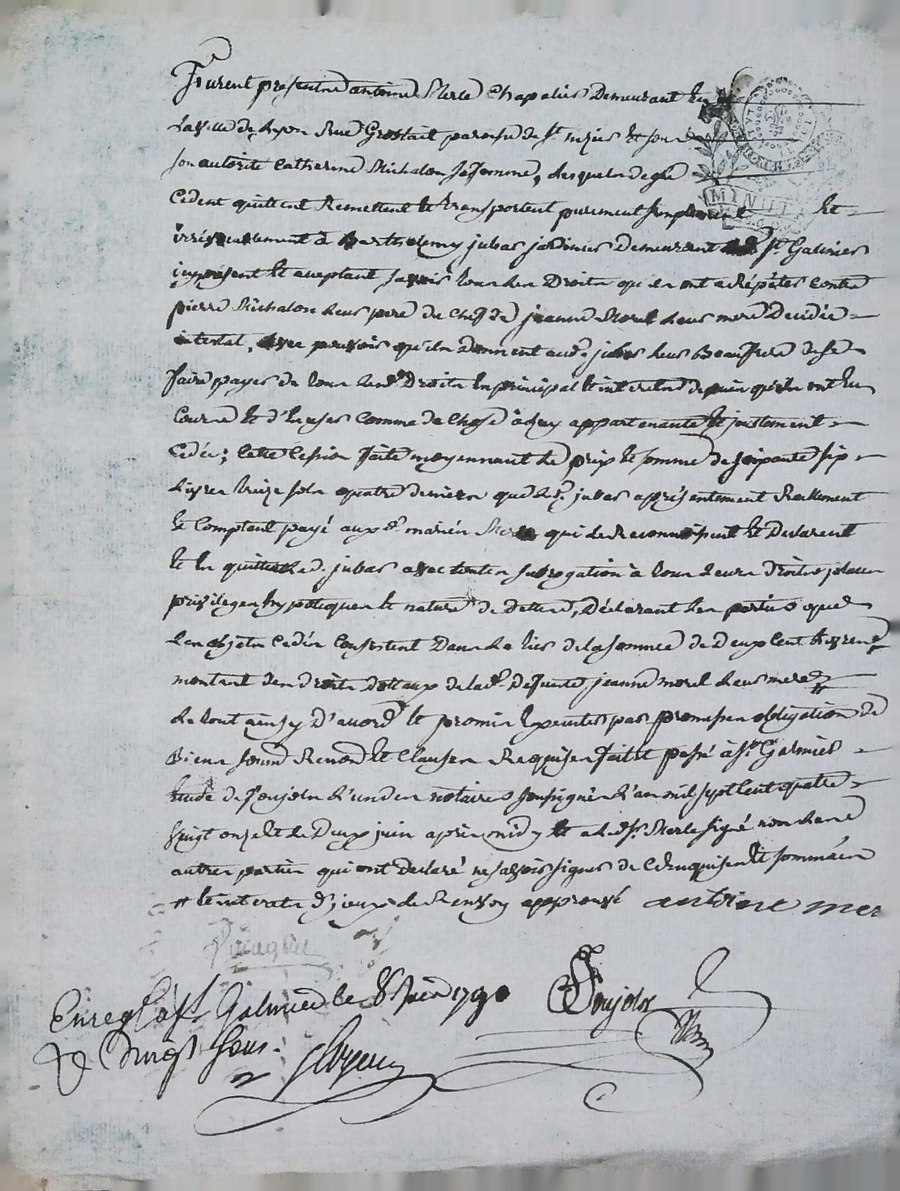 Furent présents antoine Merle Chapelier Demeurant en
la ville de Lyon Rue Grolait paroisse de St nizier et sous
son autorité Catherine Michalon sa femme, lesquels de gré
Cèdent quittent Remettent et transportent purement simplement et
irrévocablement à Barthelemy jubas jardinier demeurant à St Galmier
icy présent et acceptant savoir tous les Droits qu'ils ont a Répéter Contre
pierre Michalon leur pere du Chef de jeanne Morel leur mere Décédée
intestat, avec pouvoir qu'ils Donnent aud. jubas leur Beaufrere de se
faire payer de tous lesd. Droits en principal et interets depuis qu'ils ont eu
Cours et d'en user Comme de Chose à luy appartenante et justement
Cédée; Cette Cession faite moyennant le prix et somme de soixante six
Livres treize sols quatre deniers que led. jubas a présentement Reellement
et Comptant payé aux d. mariés Merle qui le Reconnoissent et Declarent
et en quittent led. jubas avec toute subrogation à tous leurs droits places
privileges hypoteques et nature de dettes, Déclarant les parties que
les objets Cédés Consistent Dans le tiers de la somme de Deux Cent livres
montant des droits dottaux de lad. defunte jeanne morel leur mere
le tout ainsy d'accord et promis executer par promesses obligation de
Biens soum. Renon. et Clauses Requises fait et passé à St Galmier
étude de Poujols l'un des notaires soussignés l'an mil sept cent quatre
vingt onze et le Deux juin après midy et a led. Sr Merle signé non les
autres parties qui ont declaré ne savoir signer de ce enquises et sommées
antoine mer
Enreg. à St Galmier le 8 juin 179
R. Vingt sous.
Poujols